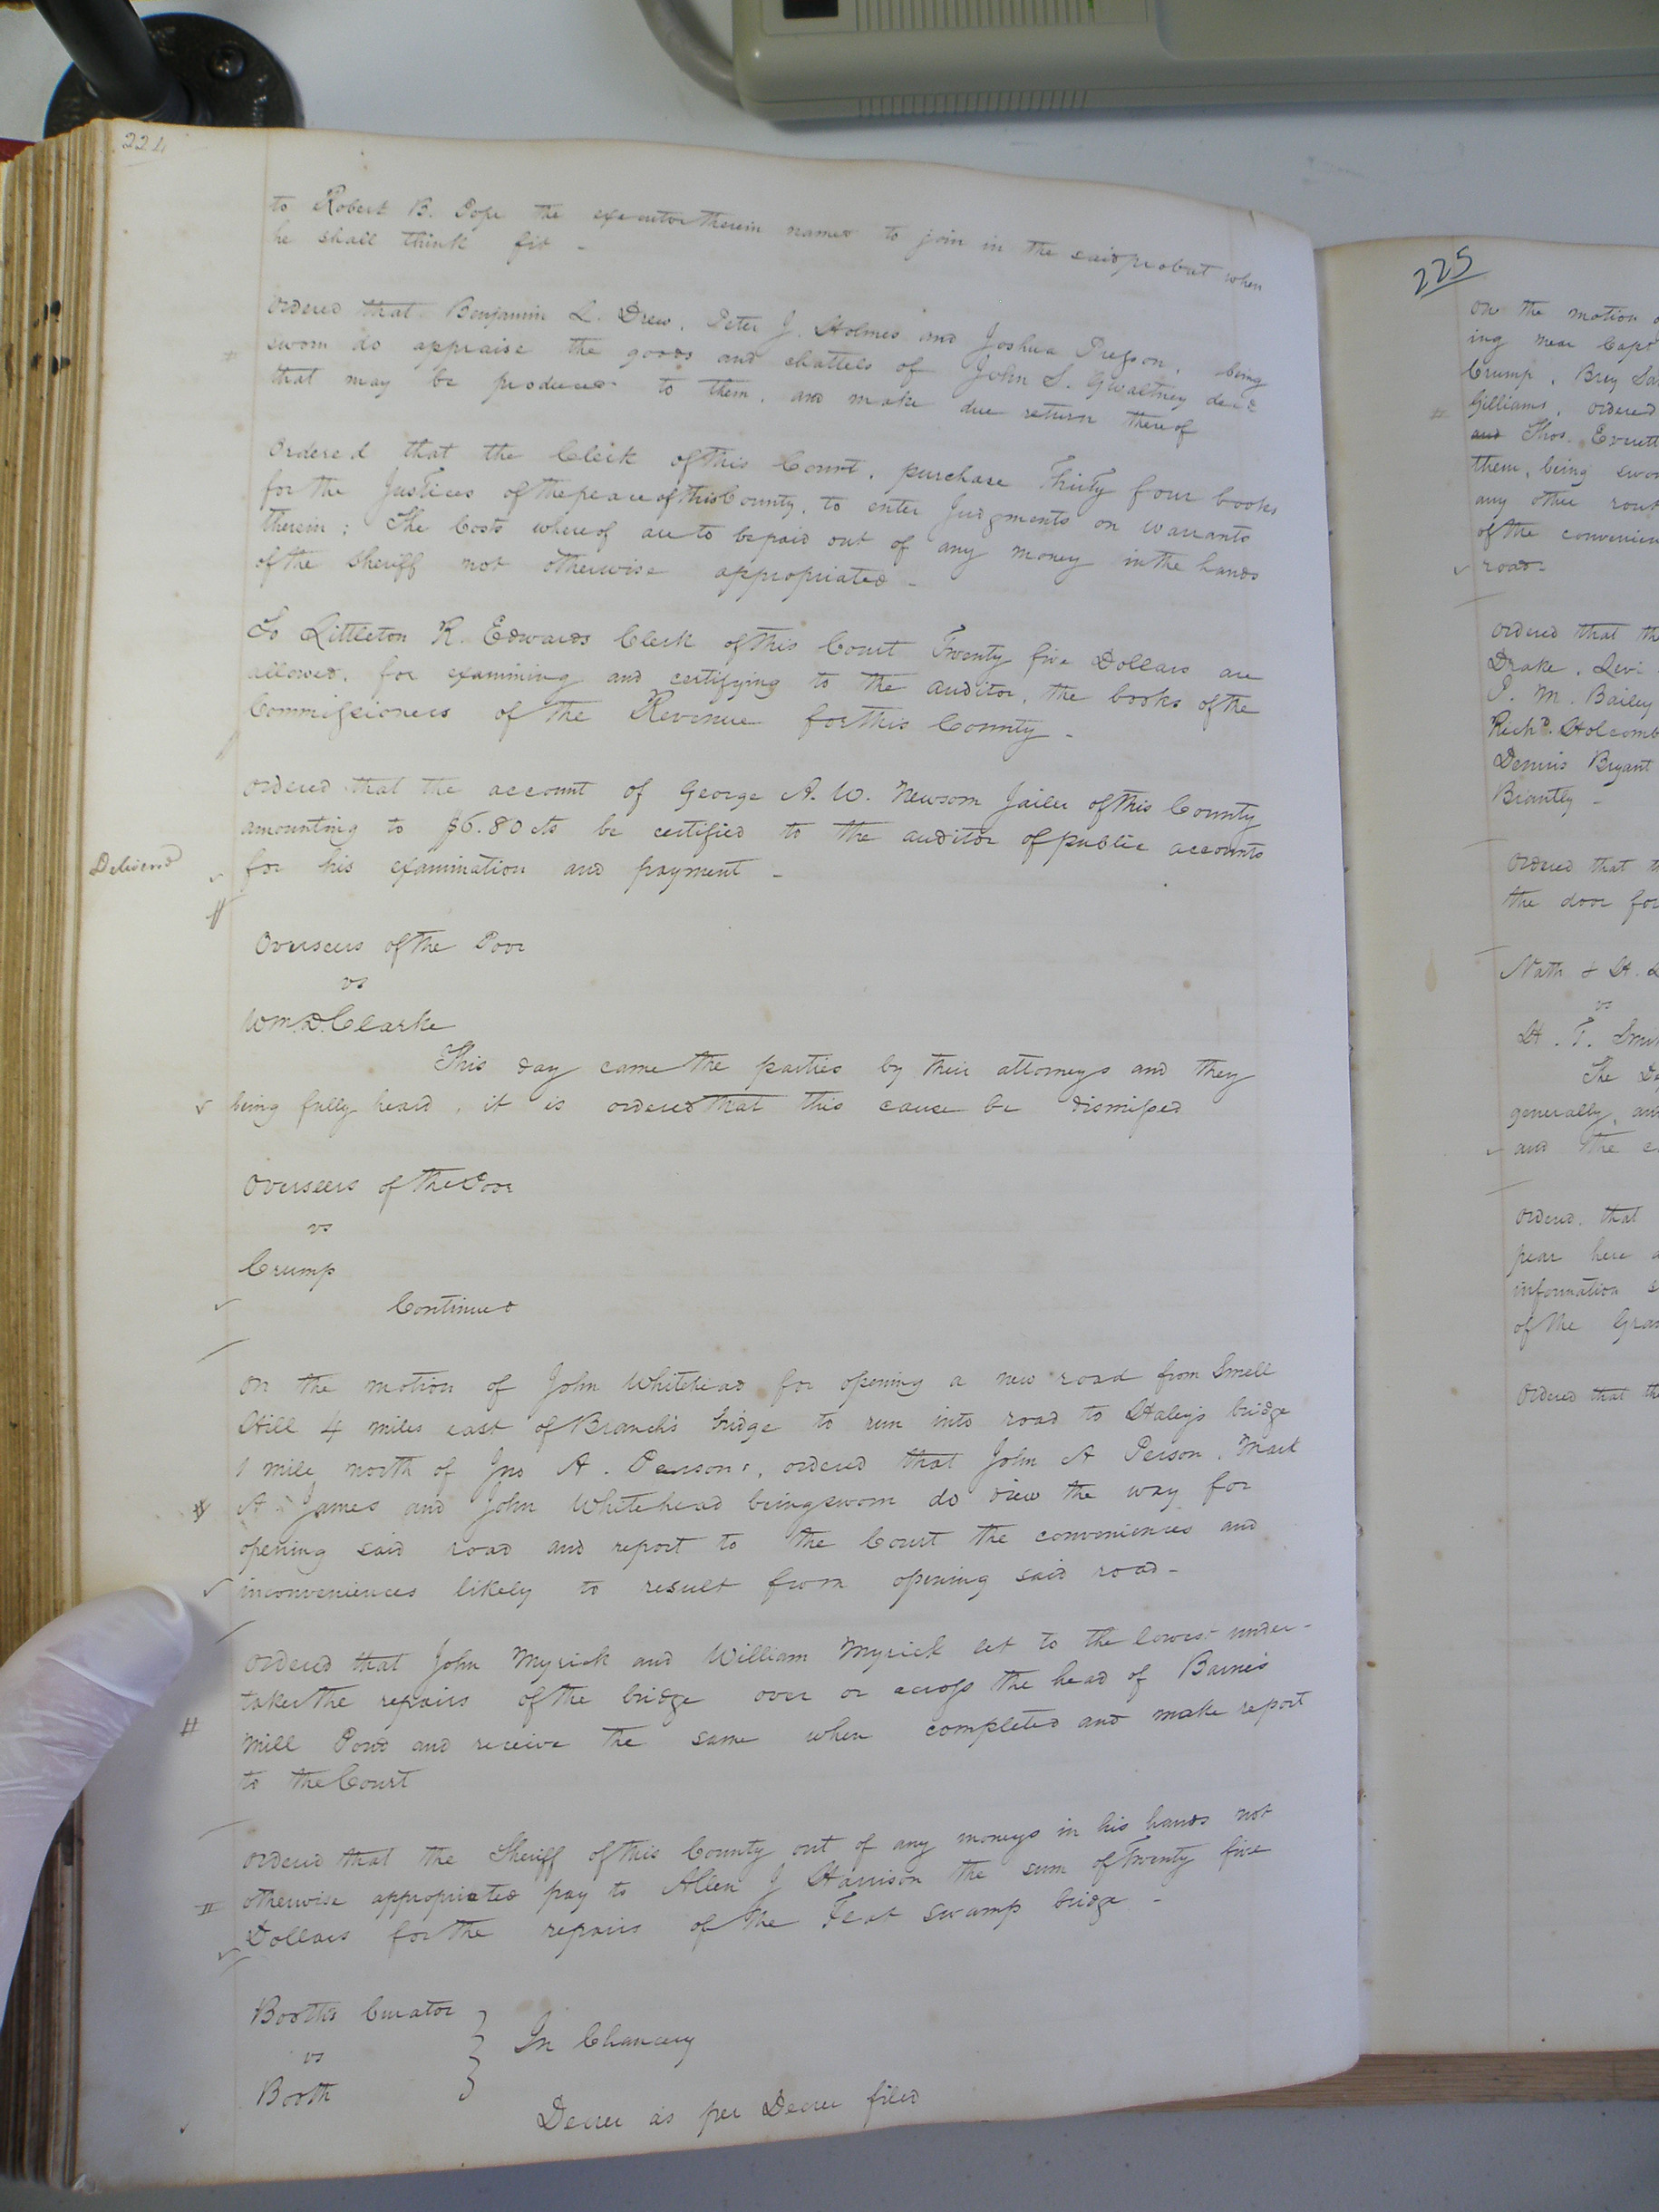 224
to Robert B. Pope the executor therein named to join in the said probat when
he shall think fit -
Ordered that Benjamin L. Drew, Peter J. Holmes and Joshua Presson, being
sworn do appraise the goods and chattels of John S. Gwaltney decd
that may be produced to them, and make due return thereof
Ordered that the Clerk of this Court, purchase Thirty four books
for the Justices of the peace of this County, to enter Judgments on warrants
therein; The Costs whereof are to be paid out of any money in the hands
of the Sheriff not otherwise appropriated -
To Littleton R. Edwards Clerk of this Court Twenty five Dollars are
allowed, for examining and certifying to the auditor, the books of the
Commissioners of the Revenue for this County -
Ordered that the account of George A. W. Newsom Jailer of this County
amounting to $6.80 cts be certified to the auditor of public accounts
Delivered for his examination and payment -
Overseers of the Poor
vs
Wm. D. Clarke
This day came the parties by their attorneys and they
being fully heard, it is ordered that this cause be dismissed
Overseers of the Poor
vs
Crump
Continued
On the motion of John Whitehead for opening a new road from Smell
Hill 4 miles east of Branch's bridge to run into road to Haley's bridge
1 mile north of Jno A. Persons, ordered that John A Person, Mark
A James and John Whitehead being sworn do view the way for
opening said road and report to the Court the conveniences and
inconveniences likely to result from opening said road -
Ordered that John Myrick and William Myrick let to the lowest under-
taker the repairs of the bridge over or across the head of Barnes
Mill Pond and receive the same when completed and make report
to the Court
Ordered that the Sheriff of this County out of any moneys in his hands not
otherwise appropriated pay to Allen J Harrison the sum of Twenty five
Dollars for the repairs of the Flat swamp bridge -
Booth's Curator
vs
In Chancery
Booth
Decree as per Decree filed
225
On the motion
ing near Capt
Crump,
Gilliams, ordered
and Thos. Everett
them, being
any other
of the
road -
Ordered that
Drake, Levi
P. M. Bailey
Richd. Holcomb
Dennis Bryant
Brantly -
Ordered that
the door for
Nath & H.
vs
H. T.
The
generally, and
and the
Ordered, that
pear here
information
of the
Ordered that